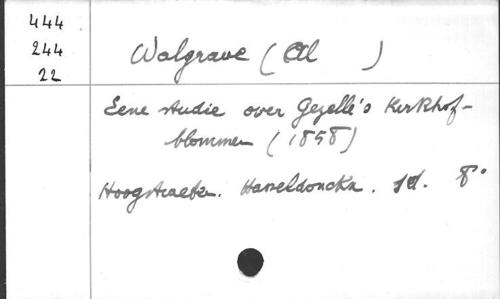 444
244
22
Walgrave (Al )
Eene studie over Gezelle's Kerkhof-
blommen (1858)
Hoogstraeten. Haseldonckx. sd. 8°